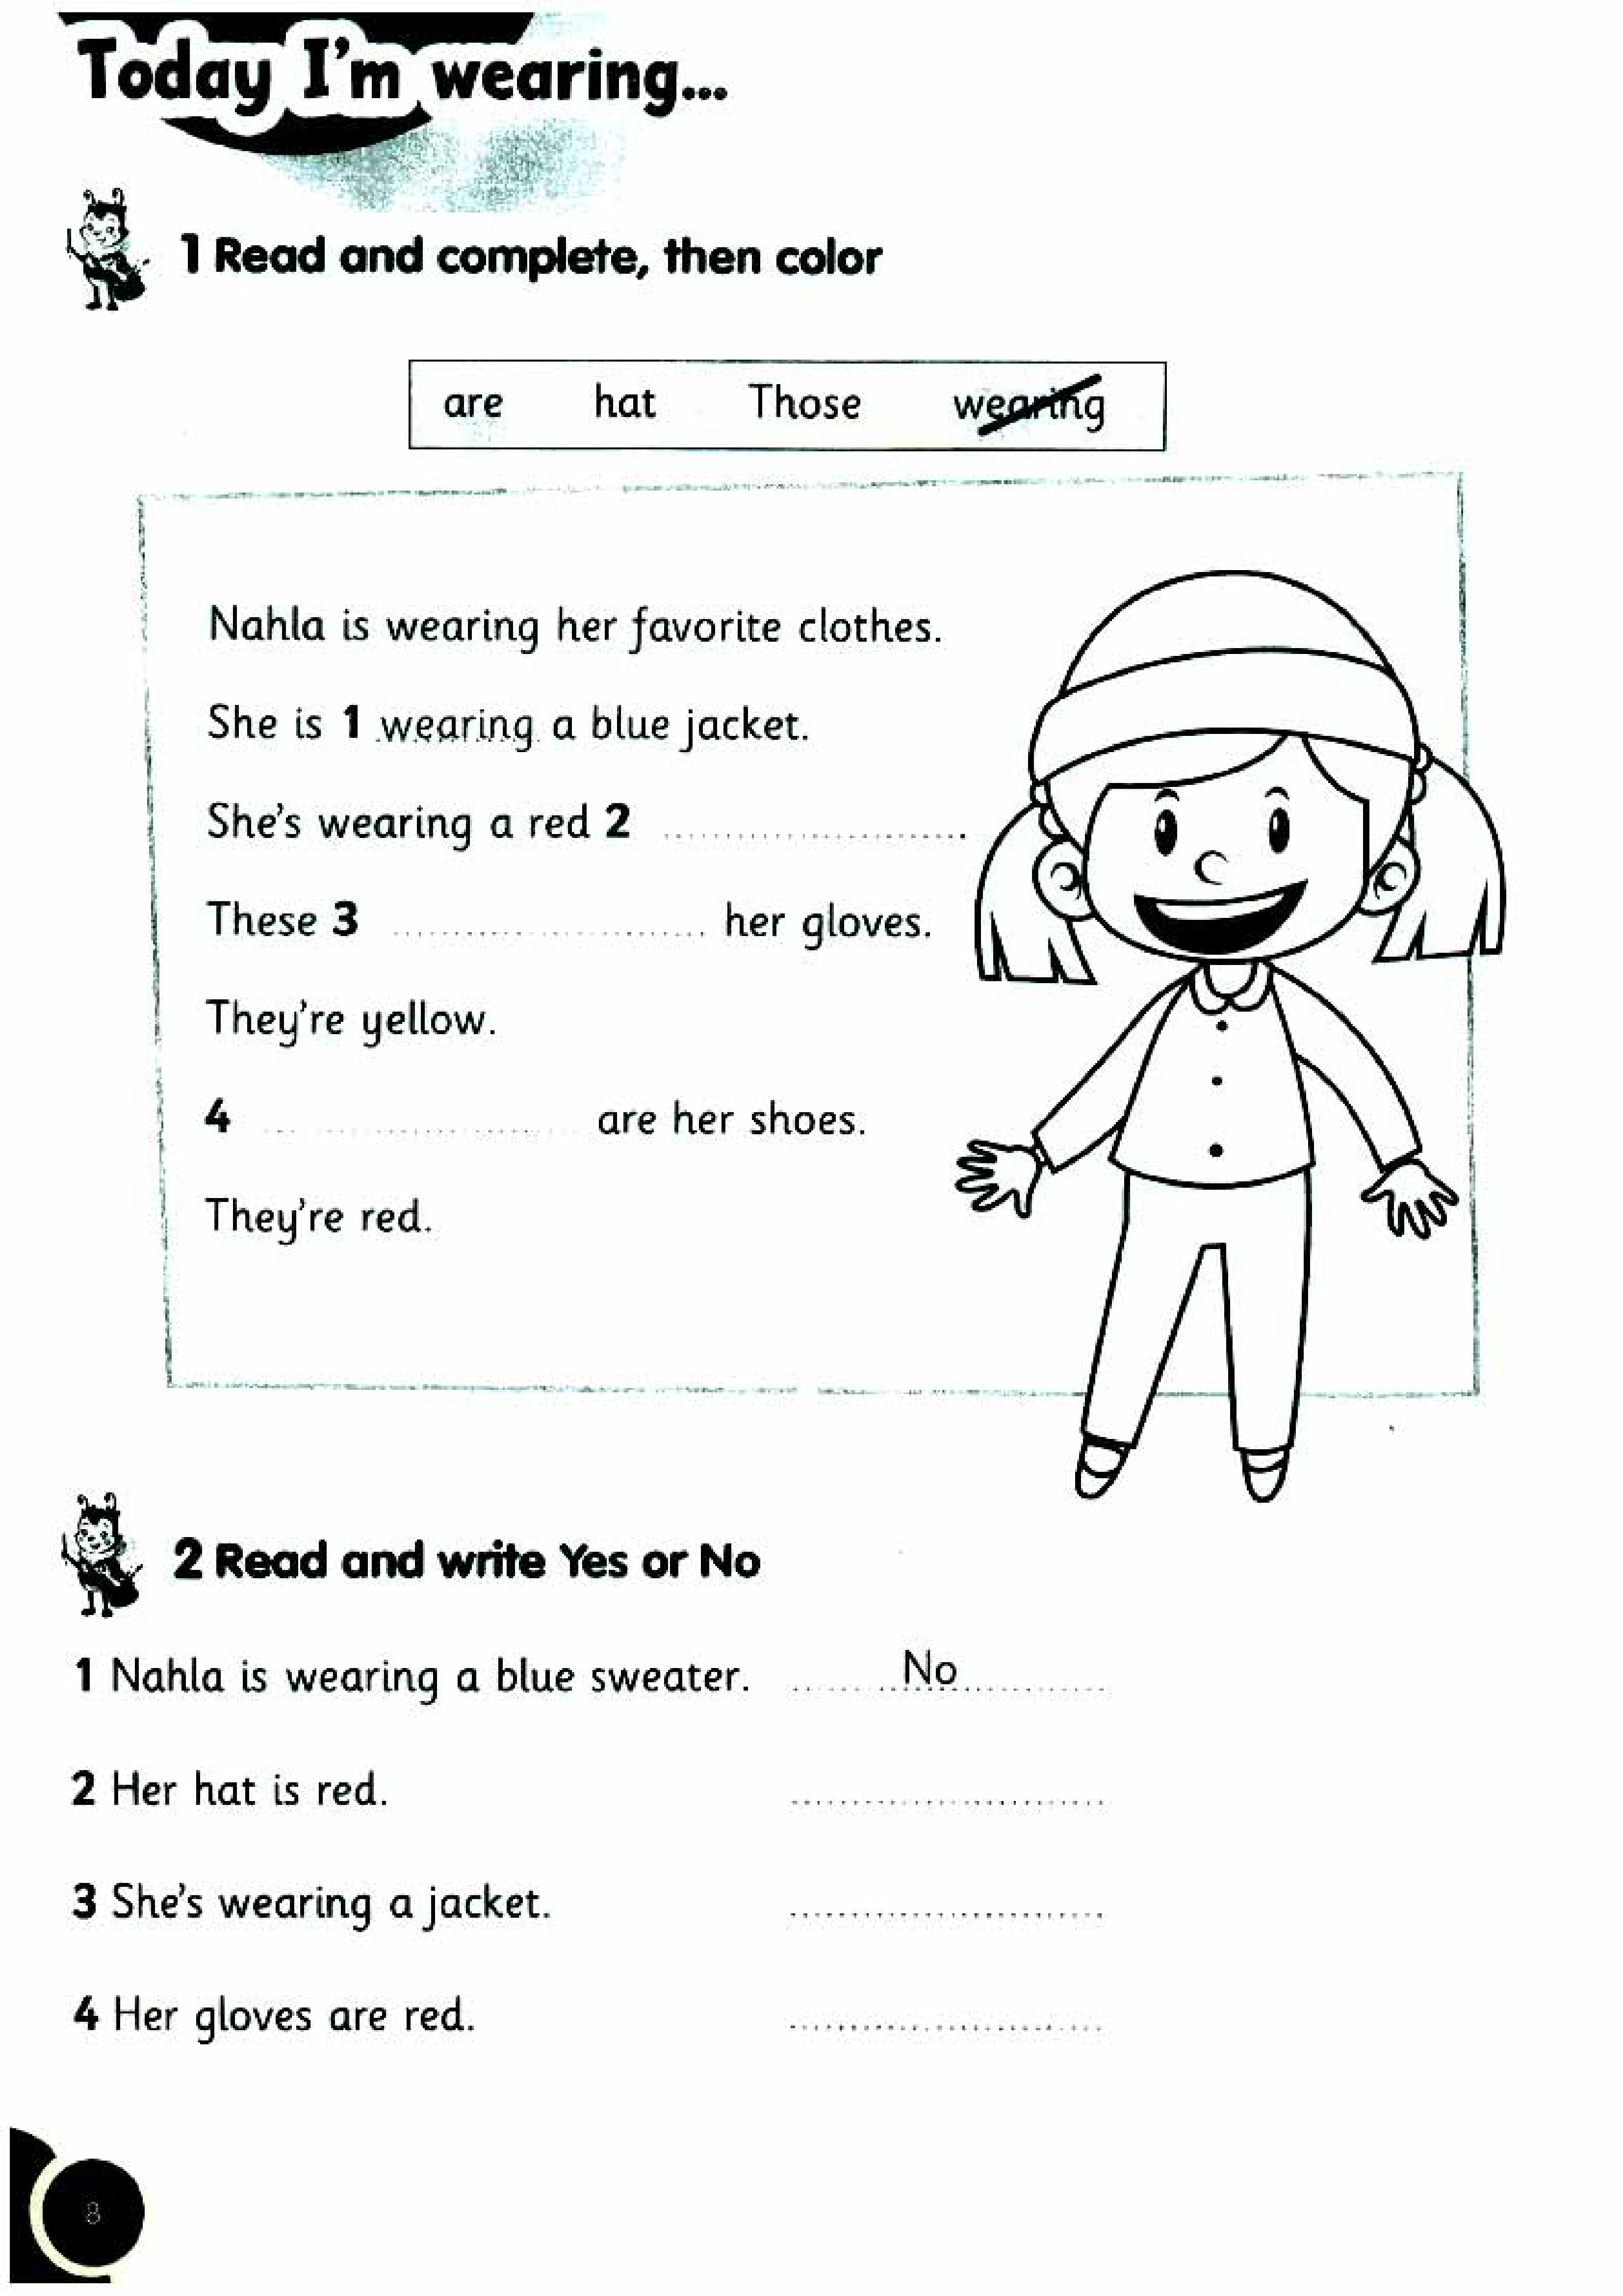 Today I'm wearing...
1 Read and complete, then color
are hat Those wearing
Nahla is wearing her favorite clothes.
She is 1 wearing a blue jacket.
She's wearing a red 2 ........................
These 3 ........................ her gloves.
They're yellow.
4 ........................ are her shoes.
They're red.
2 Read and write Yes or No
1 Nahla is wearing a blue sweater. ........No............
2 Her hat is red. ........................
3 She's wearing a jacket. ........................
4 Her gloves are red. ........................
8